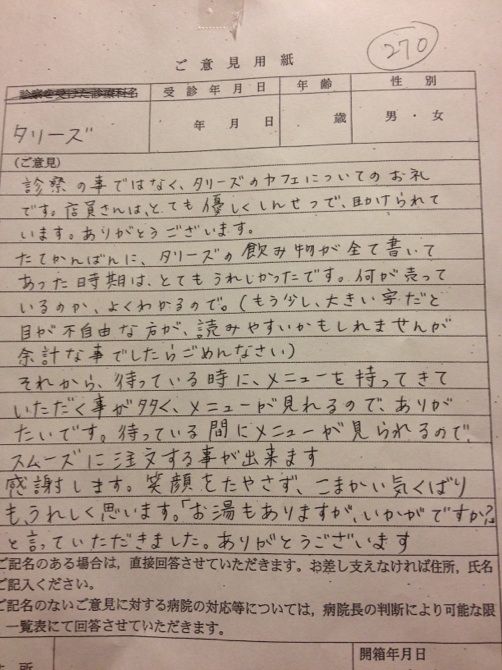 270
ご意見用紙
診察を受けた診療科名
受診年月日
年齢
性別
タリーズ
年 月 日
歳
男・女
(ご意見)
診察の事ではなく、タリーズのカフェについてのお礼
です。店員さんは、とても優しくしんせつで、助けられて
います。ありがとうございます。
たてかんばんに、タリーズの飲み物が全て書いて
あった時期は、とてもうれしかったです。何が売って
いるのか、よくわかるので。(もう少し、大きい字だと
目が不自由な方が、読みやすいかもしれませんが
余計な事でしたらごめんなさい)
それから、待っている時に、メニューを持ってきて
いただく事が多く、メニューが見れるので、ありが
たいです。待っている間にメニューが見られるので、
スムーズに注文する事が出来ます
感謝します。笑顔をたやさず、こまかい気くばり
も、うれしく思います。「お湯もありますが、いかがですか?」
と言っていただきました。ありがとうございます
ご記名のある場合は、直接回答させていただきます。お差し支えなければ住所、氏名
ご記入ください。
ご記名のないご意見に対する病院の対応等については、病院長の判断により可能な限
一覧表にて回答させていただきます。
開箱年月日
所